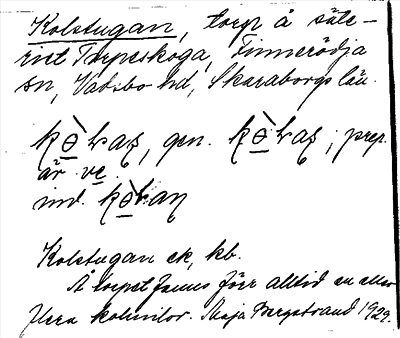 Kolstugan, torp å säte-
riet Torpeskoga, Finnerödja
sn, Vadsbo hd, Skaraborgs län.
gen. ; prep.
är ve.
ind.
Kolstugan ek, kb.
Å torpet fanns förr alltid en eller
flera kolmilor. Maja Bergstrand 1929.